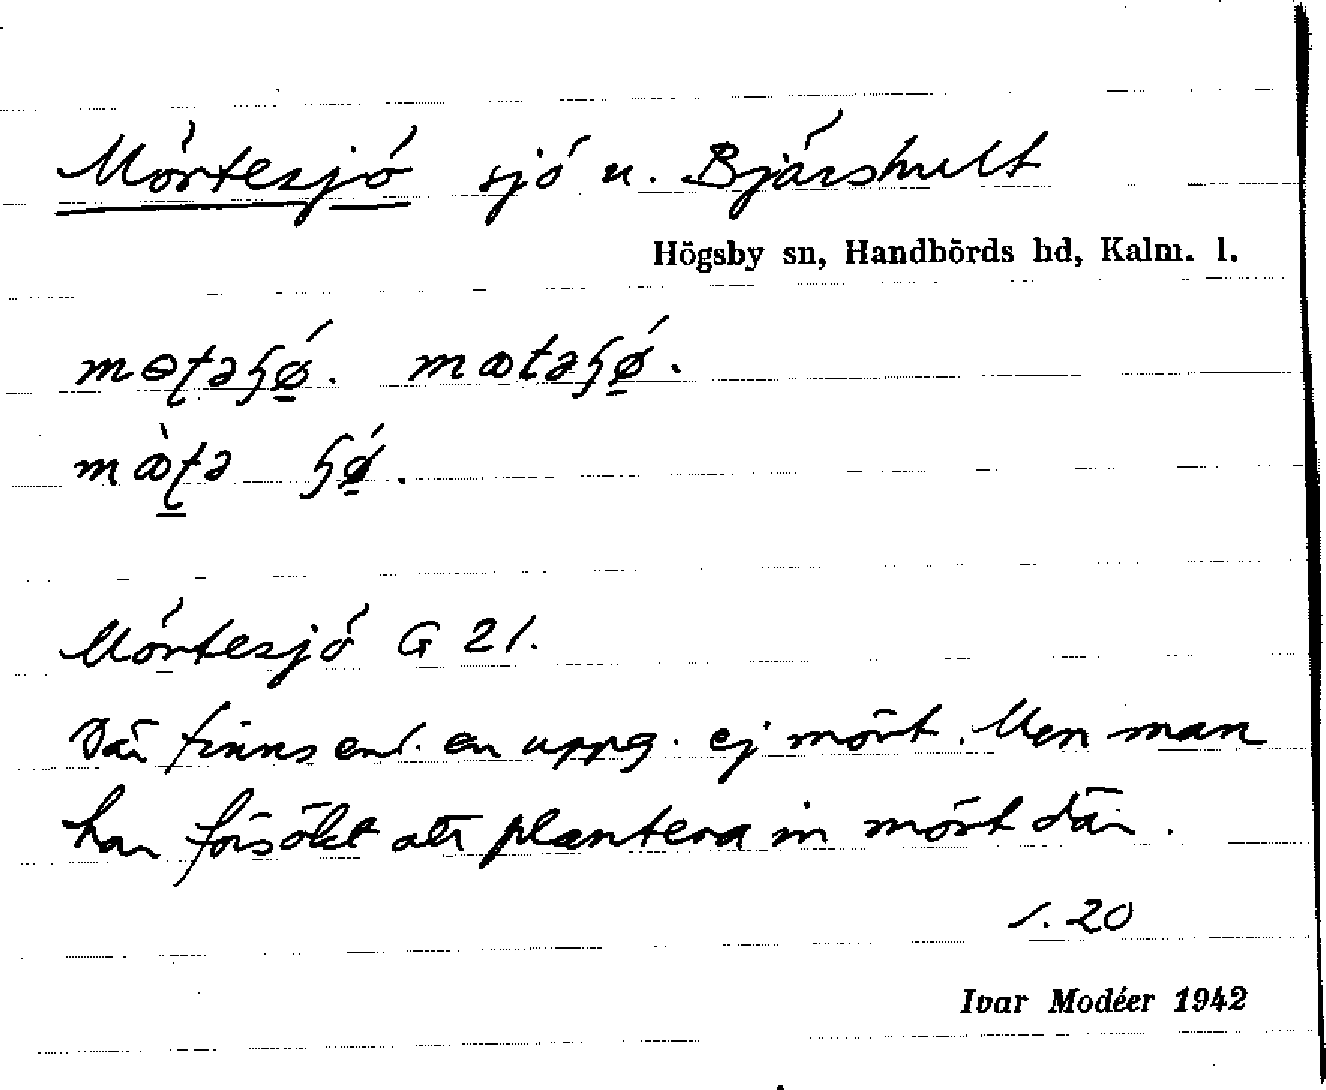 Mörtesjö sjö u. Bjärshult
Högsby sn, Handbörds hd, Kalm. l.
mɵʈəɧǿ. mꝏtəɧǿ.
mꝏ̀ʈə ɧǿ.
Mörtesjö G 21.
Där finns enl. en uppg. ej mört. Men man
har försökt att plantera in mört där.
s. 20
Ivar Modéer 1942